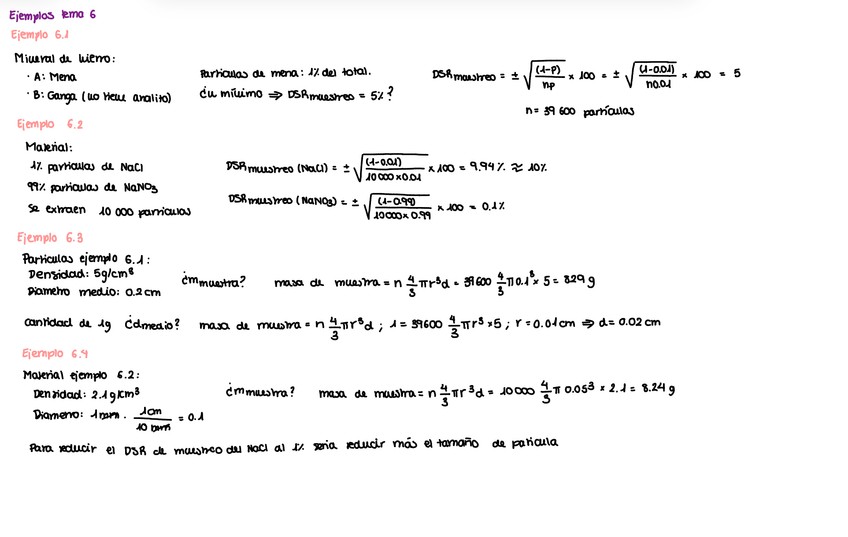 Ejemplos tema 6
Ejemplo 6.1
Mineral de hierro:
· A: Mena
· B: Ganga (no tiene analito)
Partículas de mena: 1% del total.
¿n mínimo ⇒ DSR muestreo = 5%?
DSR muestreo = ± √((1-P)/np) × 100 = ± √((1-0.01)/n0.01) × 100 = 5
n = 39 600 partículas
Ejemplo 6.2
Material:
1% partículas de NaCl
99% partículas de NaNO₃
Se extraen 10 000 partículas
DSR muestreo (NaCl) = ± √((1-0.01)/10 000×0.01) × 100 = 9.94% ≈ 10%
DSR muestreo (NaNO₃) = ± √((1-0.99)/10 000×0.99) × 100 = 0.1%
Ejemplo 6.3
Partículas ejemplo 6.1:
Densidad: 5g/cm³
Diametro medio: 0.2 cm
¿m muestra?
masa de muestra = n 4/3 πr³d = 39600 4/3 π0.1³ × 5 = 829 g
cantidad de 1g ¿d medio? masa de muestra = n 4/3 πr³d ; 1 = 39600 4/3 πr³ ×5 ; r = 0.01 cm ⇒ d = 0.02 cm
Ejemplo 6.4
Material ejemplo 6.2:
Densidad: 2.1 g/cm³
Diametro: 1 mm · 1cm/10 mm = 0.1
¿m muestra?
masa de muestra = n 4/3 πr³d = 10 000 4/3 π 0.05³ × 2.1 = 8.24 g
Para reducir el DSR de muestreo del NaCl al 1% seria reducir más el tamaño de paticula